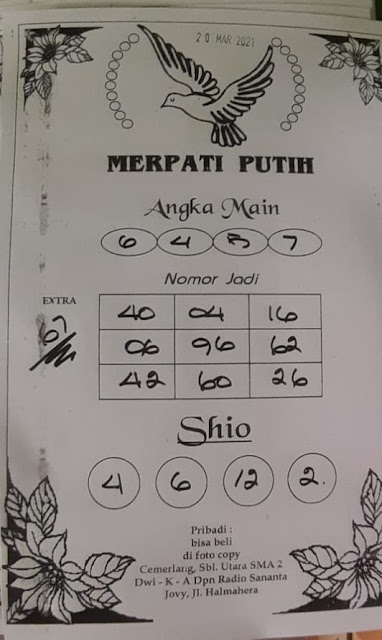 20 MAR 2021
MERPATI PUTIH
Angka Main
6 4 3 7
Nomor Jadi
EXTRA
67
40 04 16
06 96 62
42 60 26
Shio
4 6 12 2.
Pribadi :
bisa beli
di foto copy
Cemerlang, Sbl. Utara SMA 2
Dwi - K - A Dpn Radio Sananta
Jovy, Jl. Halmahera